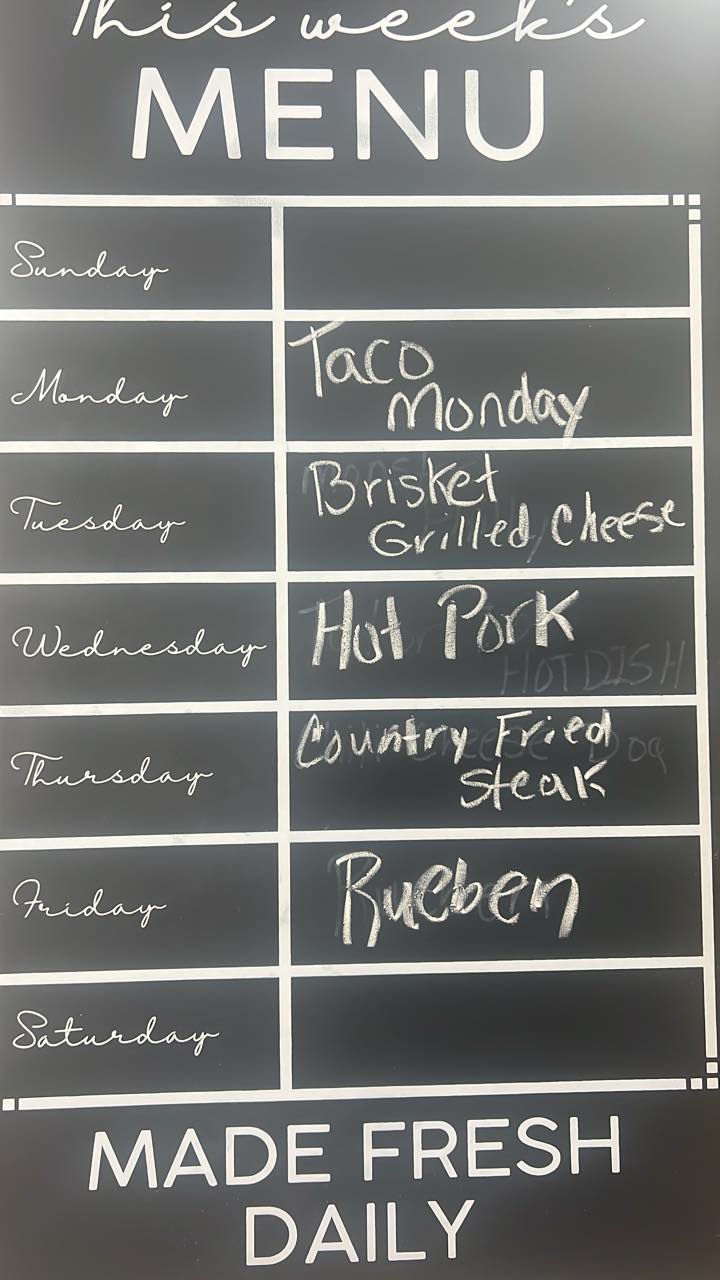 This week's
MENU
Sunday
Monday
Taco
Monday
Tuesday
Brisket
Grilled Cheese
Wednesday
Hot Pork
HOTDISH
Thursday
Country Fried
Steak
Friday
Rueben
Saturday
MADE FRESH
DAILY